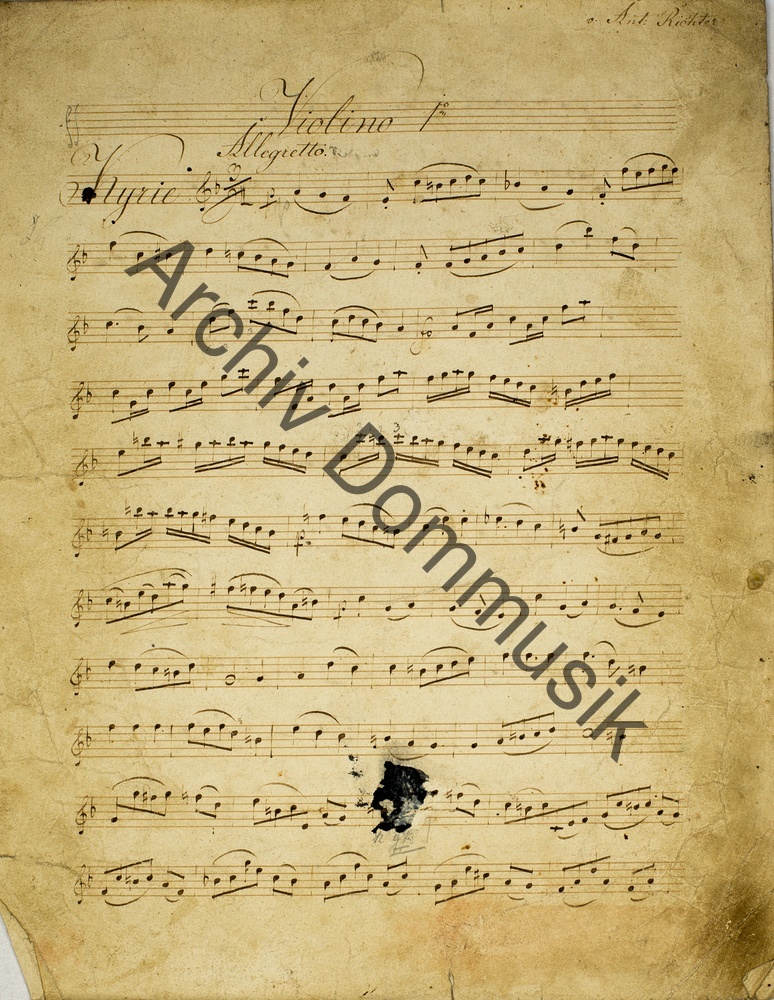 v. Ant: Richter
Violino 1mo
Allegretto.
Kyrie
3
3
Archiv Dommusik